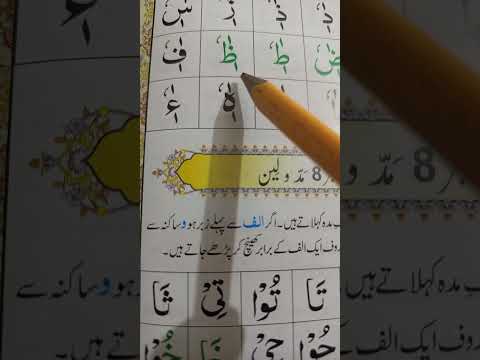 دٰٖ ذٰٖ رٰٖ سٰٖ
ضٰٖ طٰٖ ظٰٖ فٰٖ
هٰٖ ءٰٖ
8 مَدّ و لین
مدہ کہلاتے ہیں۔ اگر الف سے پہلے زبر ہو و ساکنہ سے
روف ایک الف کے برابر کھینچ کر پڑھے جاتے ہیں۔
تَا تُوْا تِیْ ثَا
حُوْا حِیْ خَا خُوْا